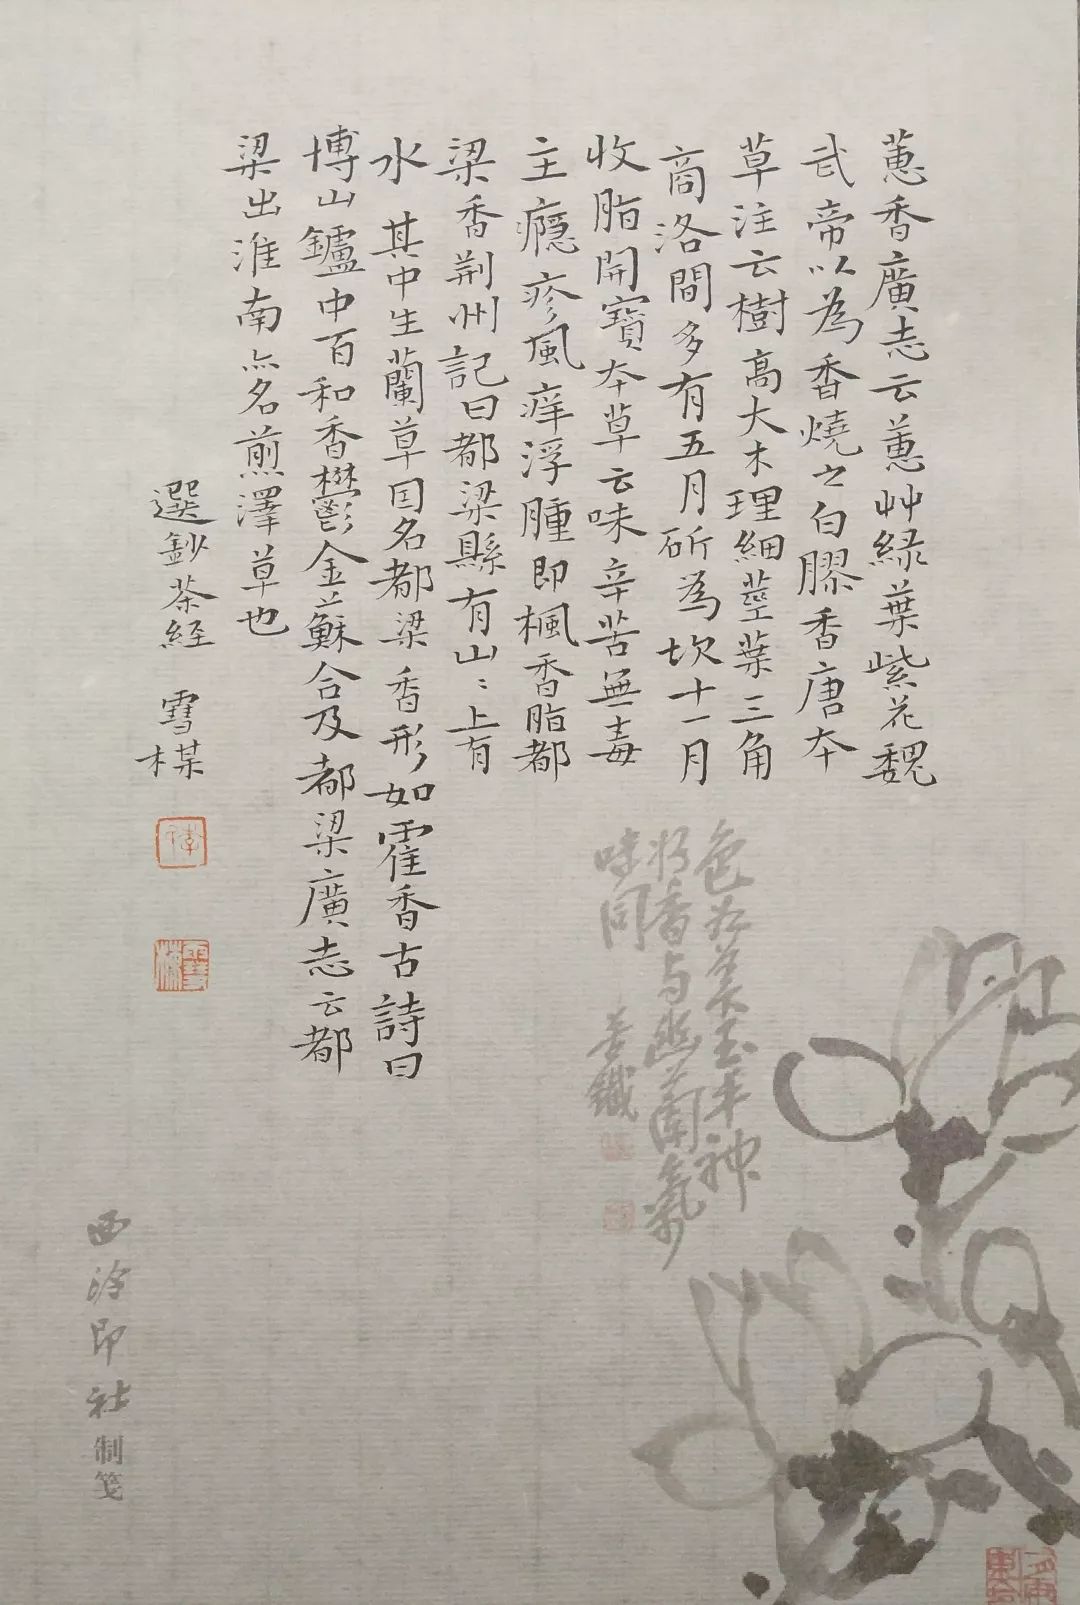 蕙香廣志云蕙艸緑葉紫花魏
武帝以為香燒之白膠香唐本
草注云樹高大木理細莖葉三角
商洛間多有五月斫為坎十一月
收脂開寶本草云味辛苦無毒
主癮疹風痒浮腫即楓香脂都
梁香荆州記曰都梁縣有山〻上有
水其中生蘭草因名都梁香形如霍香古詩曰
博山鑪中百和香鬱金蘇合及都梁廣志云都
梁出淮南亦名煎澤草也
選鈔茶経 雪楳
色如美玉丰神
好香与幽蘭氣
味同 苦鐵
西泠印社制箋